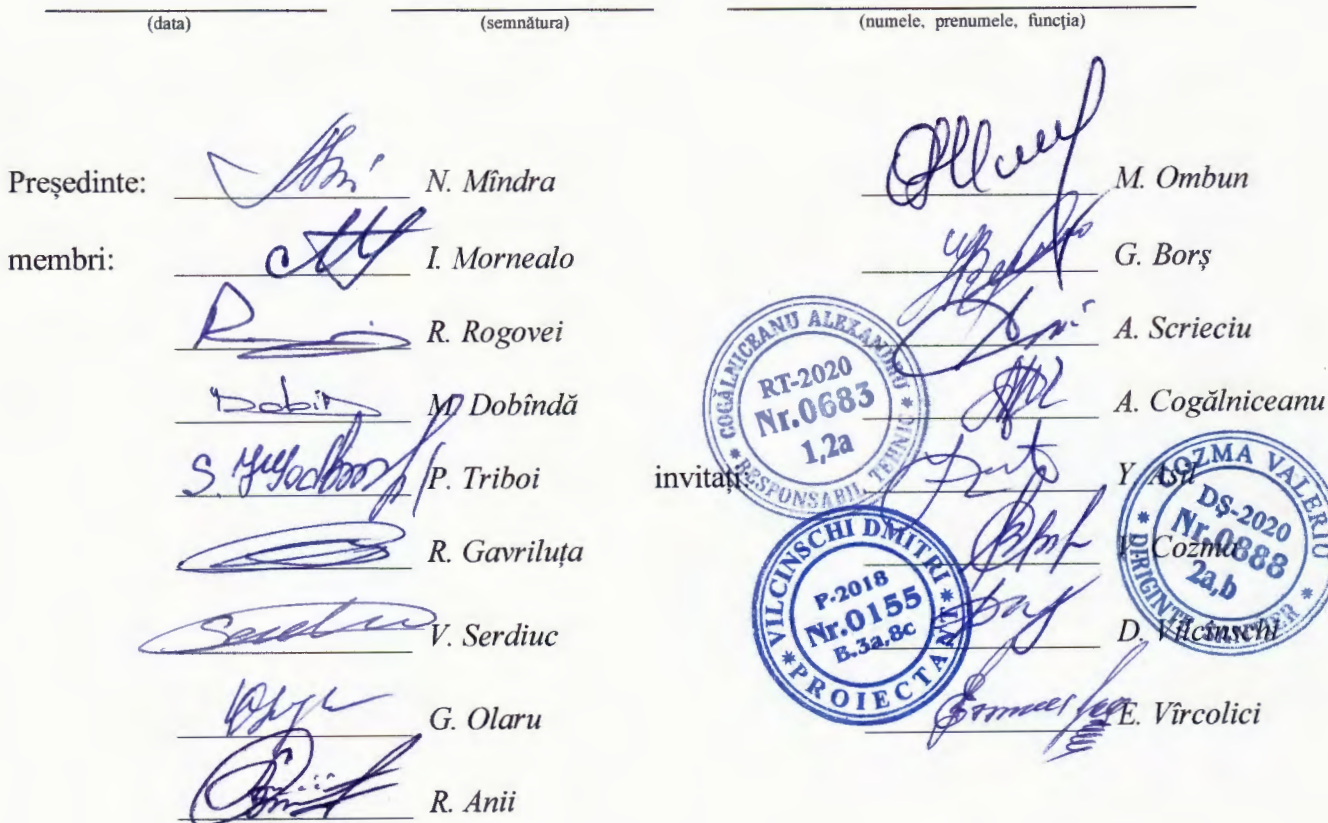 (data) (semnătura) (numele, prenumele, funcția)
Președinte: N. Mîndra
membri: I. Mornealo
R. Rogovei
Dobîn M. Dobîndă
P. Triboi
R. Gavriluța
V. Serdiuc
G. Olaru
R. Anii
M. Ombun
G. Borș
A. Scrieciu
A. Cogălniceanu
invitați: Y. Asil
V. Cozma
D. Vilcinschi
E. Vîrcolici
COGĂLNICEANU ALEXANDRU * RESPONSABIL TEHNIC *
RT-2020
Nr.0683
1,2a
VILCINSCHI DMITRI * PROIECTANT *
P-2018
Nr.0155
B.3a,8c
COZMA VALERIU * DIRIGINTE ȘANTIER *
DȘ-2020
Nr.0888
2a,b